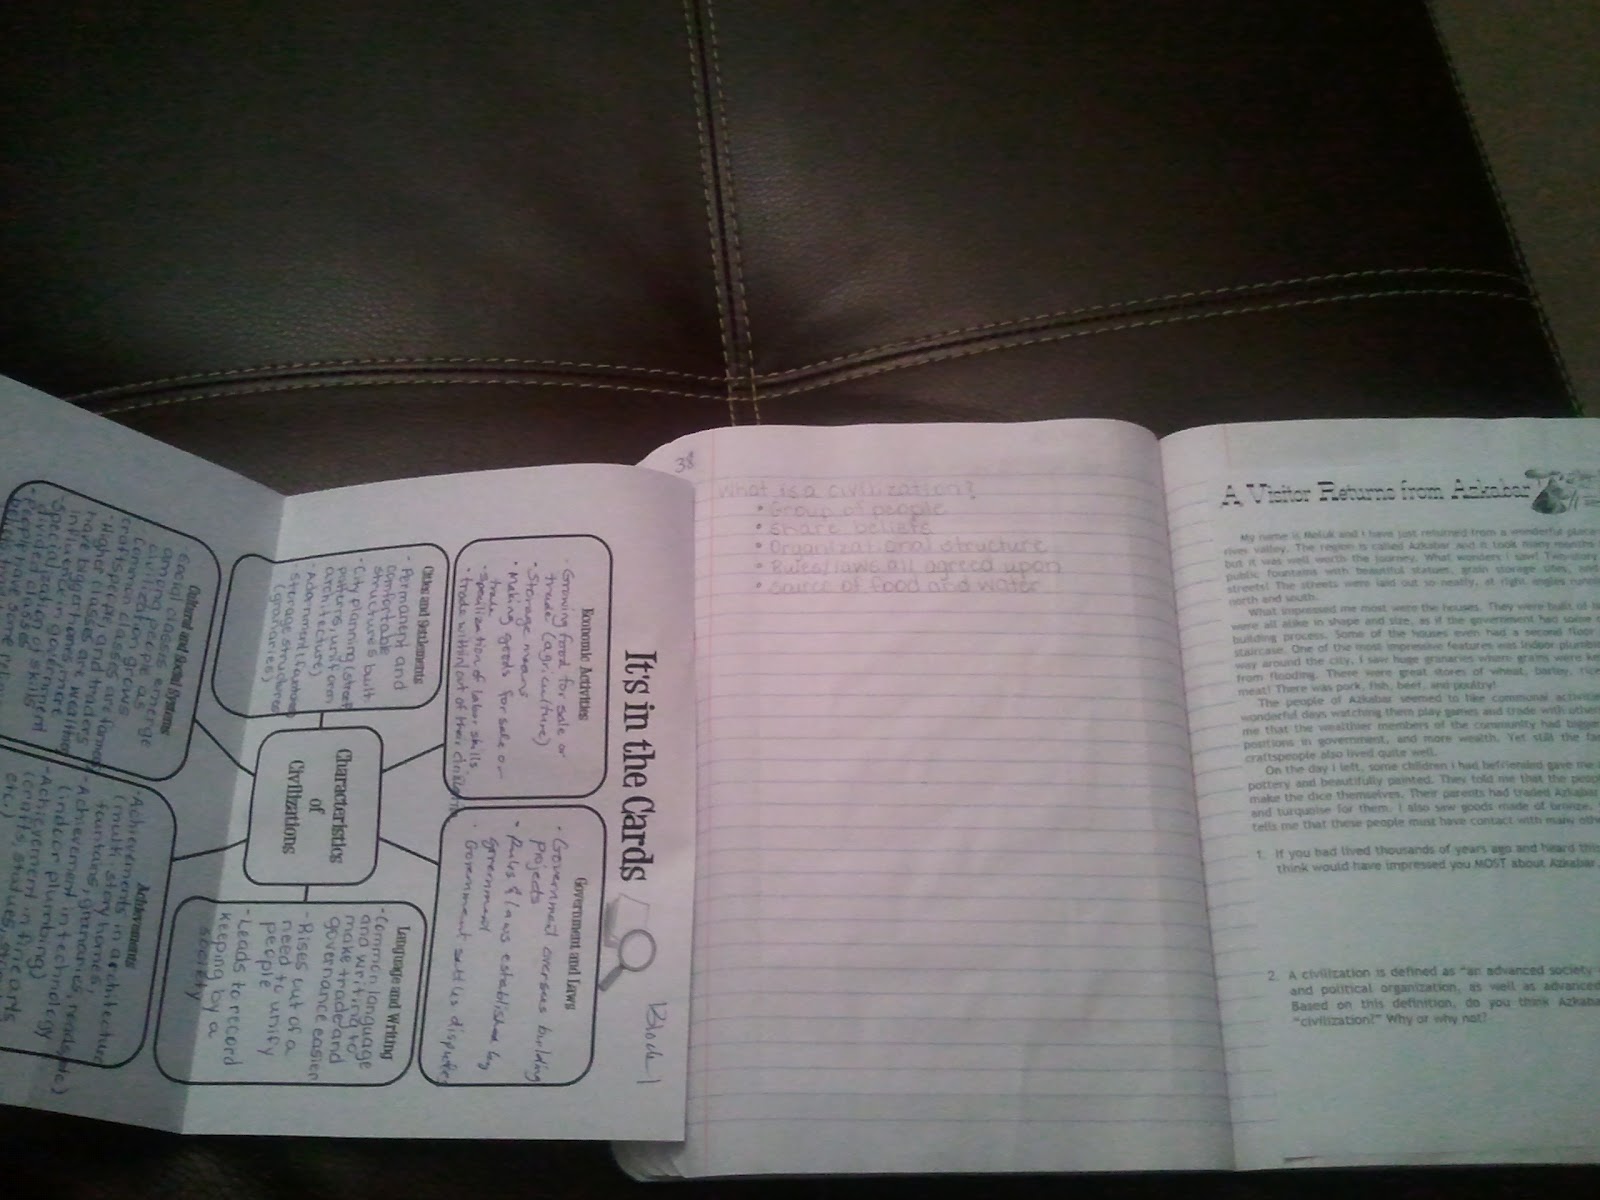 It's in the Cards
Block 1
Economic Activities
- Growing food for sale or
trade (agriculture)
• Storage means
• Making goods for sale or
trade
• specilization of labor skills
• trade within/out of their
Government and Laws
• Government oversees building
projects
• Rules & laws established by
government
• Government settles disputes
Cities and Settlements
• Permanent and
comfortable
structures built
• City planning (street
patterns, uniform
architecture)
• Adornment (fountains
• storage structures
(granaries)
Characteristics
of
Civilizations
Language and Writing
• Common language
and writing to
make trade and
governance easier
- Rises out of a
need to unify
people
- Leads to record
keeping by a
society
Cultural and Social Systems
social classes emerge
among people as
civilization grows
common classes are farmers
craftspeople, and traders
• Higher classes are wealthier
have bigger homes, more
influence in government
• specialization of skills in
divided classes
• People have some religious
Achievements
• Achievements in architecture
(multi-story homes,
fountains, granaries, roads, etc)
- Achievement in technology
(indoor plumbing)
- Achievement in fine arts
(crafts, statues,
etc)
38
What is a civilization?
• Group of people
• Share beliefs
• Organizational structure
• Rules/laws all agreed upon
• Source of food and water
A Visitor Returns from Azkabar
My name is Meluk and I have just returned from a wonderful place
river valley. The region is called Azkabar and it took many months
but it was well worth the journey. What wonders I saw! Two-story
public fountains with beautiful statues, grain storage sites, and
streets! The streets were laid out so neatly, at right angles running
north and south.
What impressed me most were the houses. They were built of
were all alike in shape and size, as if the government had some
building process. Some of the houses even had a second floor
staircase. One of the most impressive features was indoor plumbing
way around the city, I saw huge granaries where grains were kept
from flooding. There were great stores of wheat, barley, rice
meat! There was pork, fish, beef, and poultry!
The people of Azkabar seemed to like communal activities
wonderful days watching them play games and trade with others
me that the wealthier members of the community had bigger
positions in government, and more wealth. Yet still the
craftspeople also lived quite well.
On the day I left, some children I had befriended gave me
pottery and beautifully painted. They told me that the people
make the dice themselves. Their parents had traded Azkabar
and turquoise for them. I also saw goods made of bronze,
tells me that these people must have contact with many other
1. If you had lived thousands of years ago and heard this
think would have impressed you MOST about Azkabar,
2. A civilization is defined as "an advanced society
and political organization, as well as advanced
Based on this definition, do you think Azkabar
"civilization?" Why or why not?